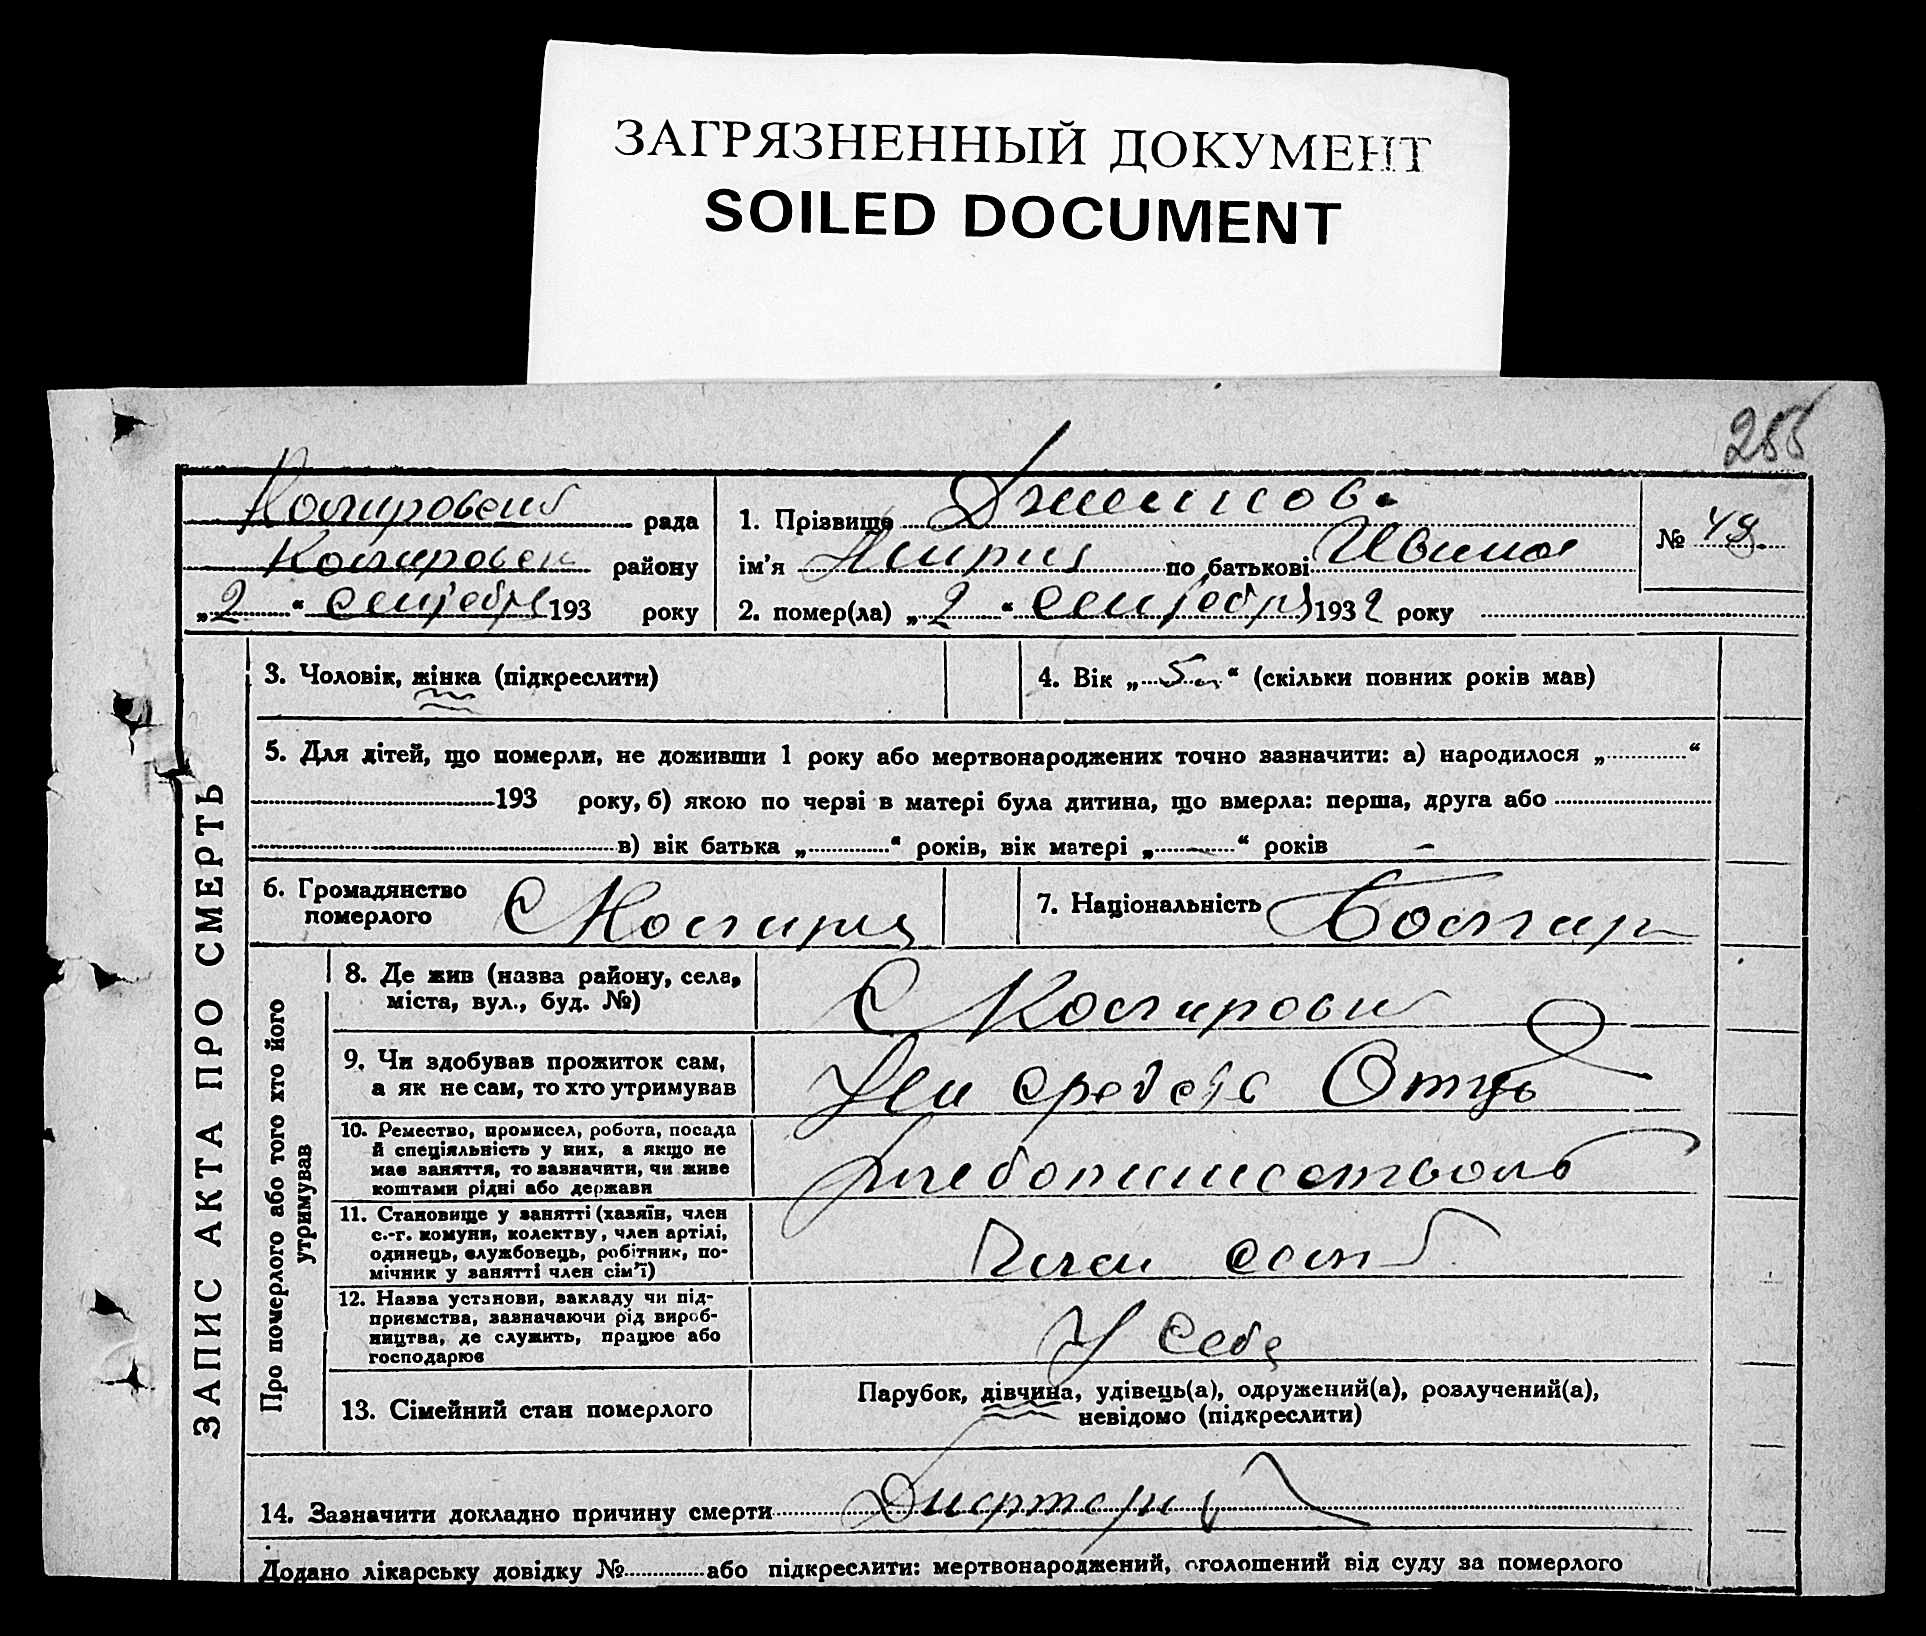 ЗАГРЯЗНЕННЫЙ ДОКУМЕНТ
SOILED DOCUMENT
рада
району
„2“ сентебря 193 року
1. Прізвище
ім'я по батькові
№ 48.
2. помер(ла) „2“ сентебря 1932 року
ЗАПИС АКТА ПРО СМЕРТЬ
3. Чоловік, жінка (підкреслити)
4. Вік „5“ (скільки повних років мав)
5. Для дітей, що померли, не доживши 1 року або мертвонароджених точно зазначити: а) народилося „ “
193 року, б) якою по черзі в матері була дитина, що вмерла: перша, друга або
в) вік батька „ “ років, вік матері „ “ років
6. Громадянство
померлого
7. Національність Болгар
Про померлого або того хто його
утримував
8. Де жив (назва району, села,
міста, вул., буд. №)
С
9. Чи здобував прожиток сам,
а як не сам, то хто утримував
На средства Отца
10. Ремество, промисел, робота, посада
й спеціяльність у них, а якщо не
має заняття, то зазначити, чи живе
коштами рідні або держави
хлебопашество
11. Становище у занятті (хазяїн, член
с.-г. комуни, колектву, член артілі,
одинець, службовець, робітник, по-
мічник у занятті член сім'ї)
12. Назва установи, закладу чи під-
приємства, зазначаючи рід вироб-
ництва, де служить, працює або
господарює
У себе
13. Сімейний стан померлого
Парубок, дівчина, удівець(а), одружений(а), розлучений(а),
невідомо (підкреслити)
14. Зазначити докладно причину смерти
Додано лікарську довідку № або підкреслити: мертвонароджений, оголошений від суду за померлого